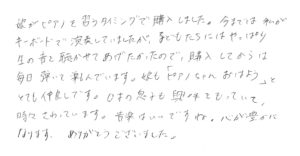 娘がピアノを習うタイミングで購入しました。今までは私が
キーボードで演奏していましたが、子どもたちにはやっぱり
生の音を聴かせてあげたかったので、購入してからは
毎日弾いて楽しんでいます。娘も「ピアノちゃんおはよう」と
とても仲良しです。日本の息子も興味をもっていて、
時々さわっています。音楽はいいですね。心が豊かに
なります。ありがとうございました。